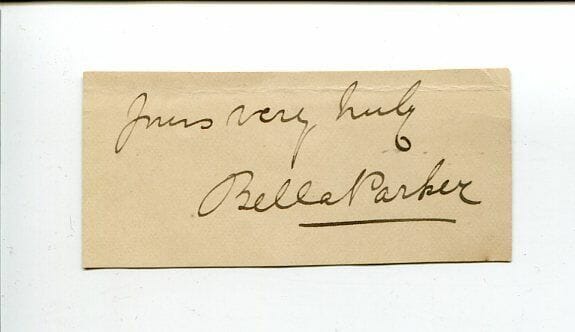 Yours very truly
Bella Parker